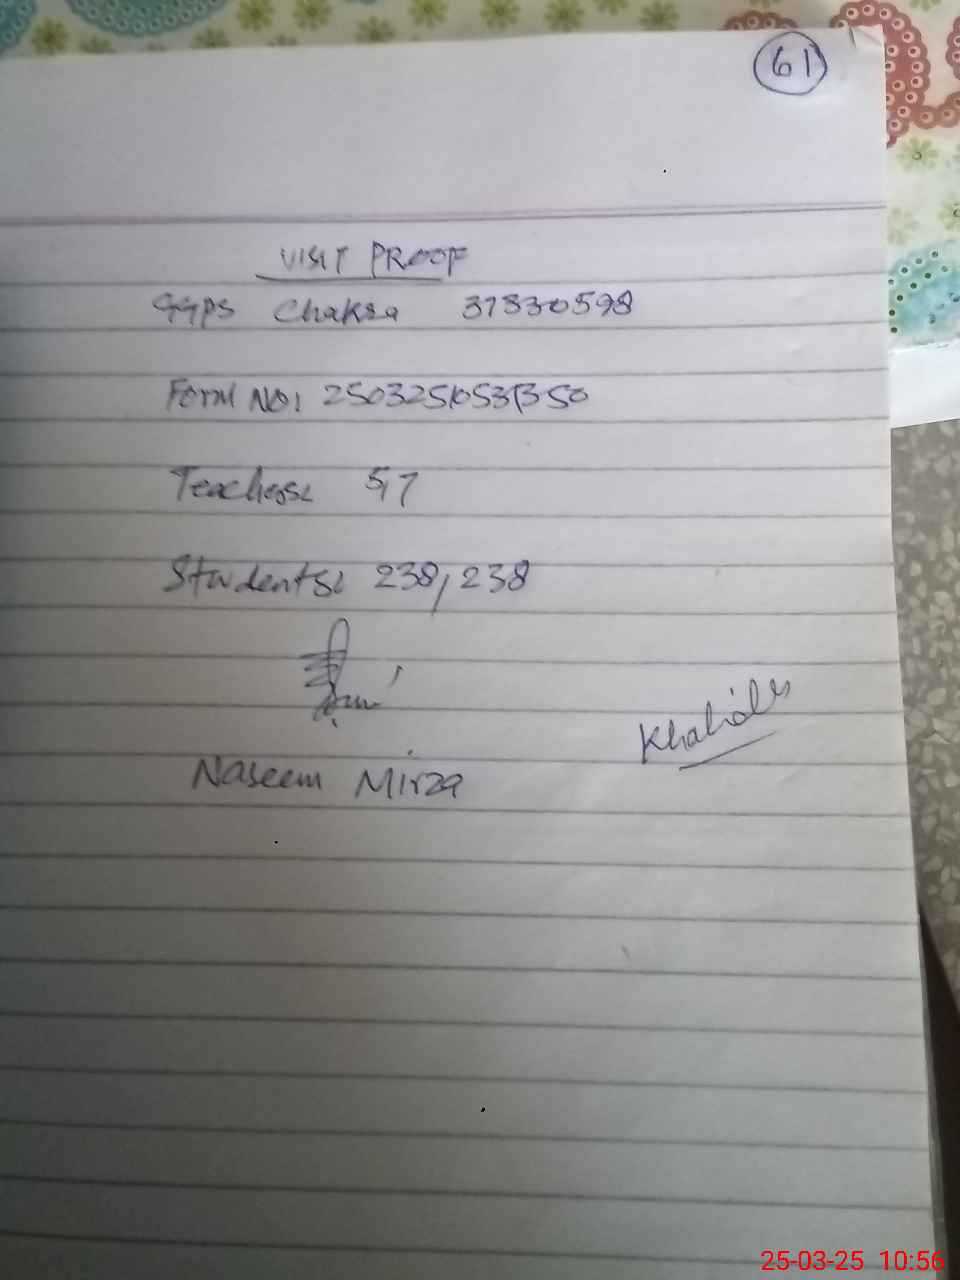 61
VISIT PROOF
GGPS Chakra 37330598
Form No: 25032510531350
Teachers: 5,7
Students: 238, 238
Khalid
Naseem Mirza
25-03-25 10:56